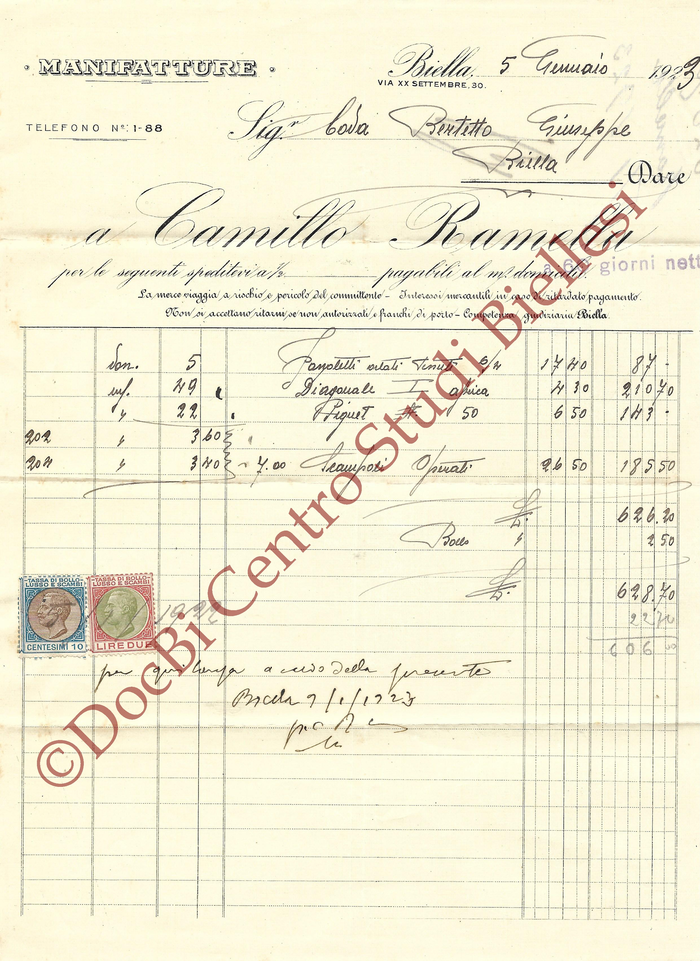 MANIFATTURE
Biella, 5 Gennaio 1923
VIA XX SETTEMBRE, 30.
TELEFONO Nº: 1-88
Sig.r Coda Bertetto Giuseppe
Biella Dare
a Camillo Ramella
per le seguenti speditevi a/ pagabili al mº domicilio.
a 60 giorni nett
La merce viaggia a rischio e pericolo del committente - Interessi mercantili in caso di ritardato pagamento.
Non si accettano ritorni se non autorizzati e franchi di porto - Competenza giudiziaria Biella.
5 17 40 87 -
49 Diagonale I 4 30 210 70
" 22 Piquet 50 6 50 143 -
202 " 3 60
204 " 3 40 7.00 Scampoli Operati 26 50 185 50
L. 626.20
Bollo " 2 50
L. 628.70
22 70
606
TASSA DI BOLLO LUSSO E SCAMBI CENTESIMI 10
TASSA DI BOLLO LUSSO E SCAMBI LIRE DUE
per quietanza a saldo della presente
Biella 9/1/1923
©DocBi Centro Studi Biellesi